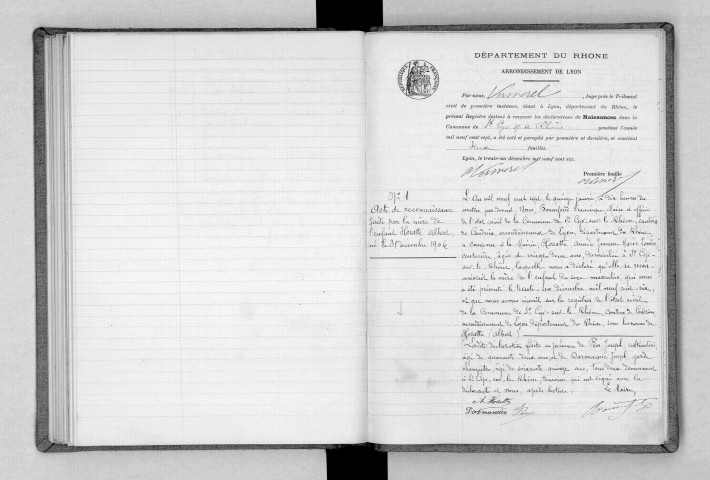 DÉPARTEMENT DU RHONE
ARRONDISSEMENT DE LYON
RÉPUBLIQUE FRANÇAISE
Par nous, Vamorel, Juge près le Tribunal
civil de première instance, séant à Lyon, département du Rhône, le
présent Registre destiné à recevoir les déclarations de Naissances dans la
Commune de St Cyr s/ le Rhône pendant l'année
mil neuf cent sept, a été coté et paraphé par première et dernière, et contient
feuilles.
Lyon, le trente-un décembre mil neuf cent six.
Vamorel
Première feuille
N° 1
Acte de reconnaissance
faite par la mère de
l'enfant Hozatte Albert,
né le 31 décembre 1906
L'An mil neuf cent sept, le quinze janvier, à dix heures du
matin, par devant Nous, Bonnefond Françisque, Maire et officier
de l'état civil de la Commune de St Cyr-sur-le-Rhône, canton
de Condrieu, arrondissement de Lyon, département du Rhône,
a comparu à la Mairie, Hozatte Annie Marie Louise
couturière, âgée de vingt deux ans, domiciliée à St Cyr-
sur-le-Rhône, laquelle nous a déclaré qu'elle se recon-
naissait la mère de l'enfant du sexe masculin, qui nous
a été présenté le trente-un décembre mil neuf cent six,
et que nous avons inscrit sur les registres de l'état civil
de la Commune de St Cyr-sur-le-Rhône, canton de Condrieu
arrondissement de Lyon département du Rhône, sous les noms de
Hozatte (Albert).
Ladite déclaration faite en présence de Joseph, cultivateur
âgé de quarante deux ans, et de Darmancier Joseph, garde
champêtre, âgé de soixante quinze ans, tous deux demeurant
à St Cyr-sur-le-Rhône, témoins qui ont signé avec la
déclarante et nous, après lecture. Le Maire,
A. Hozatte
Darmancier